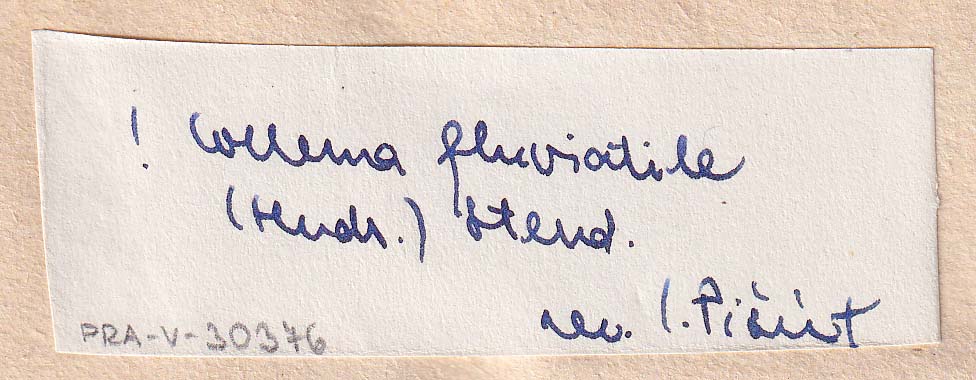 ! Collema fluviatile
(Huds.) Steud.
rev. I. Pišút
PRA-V-30376